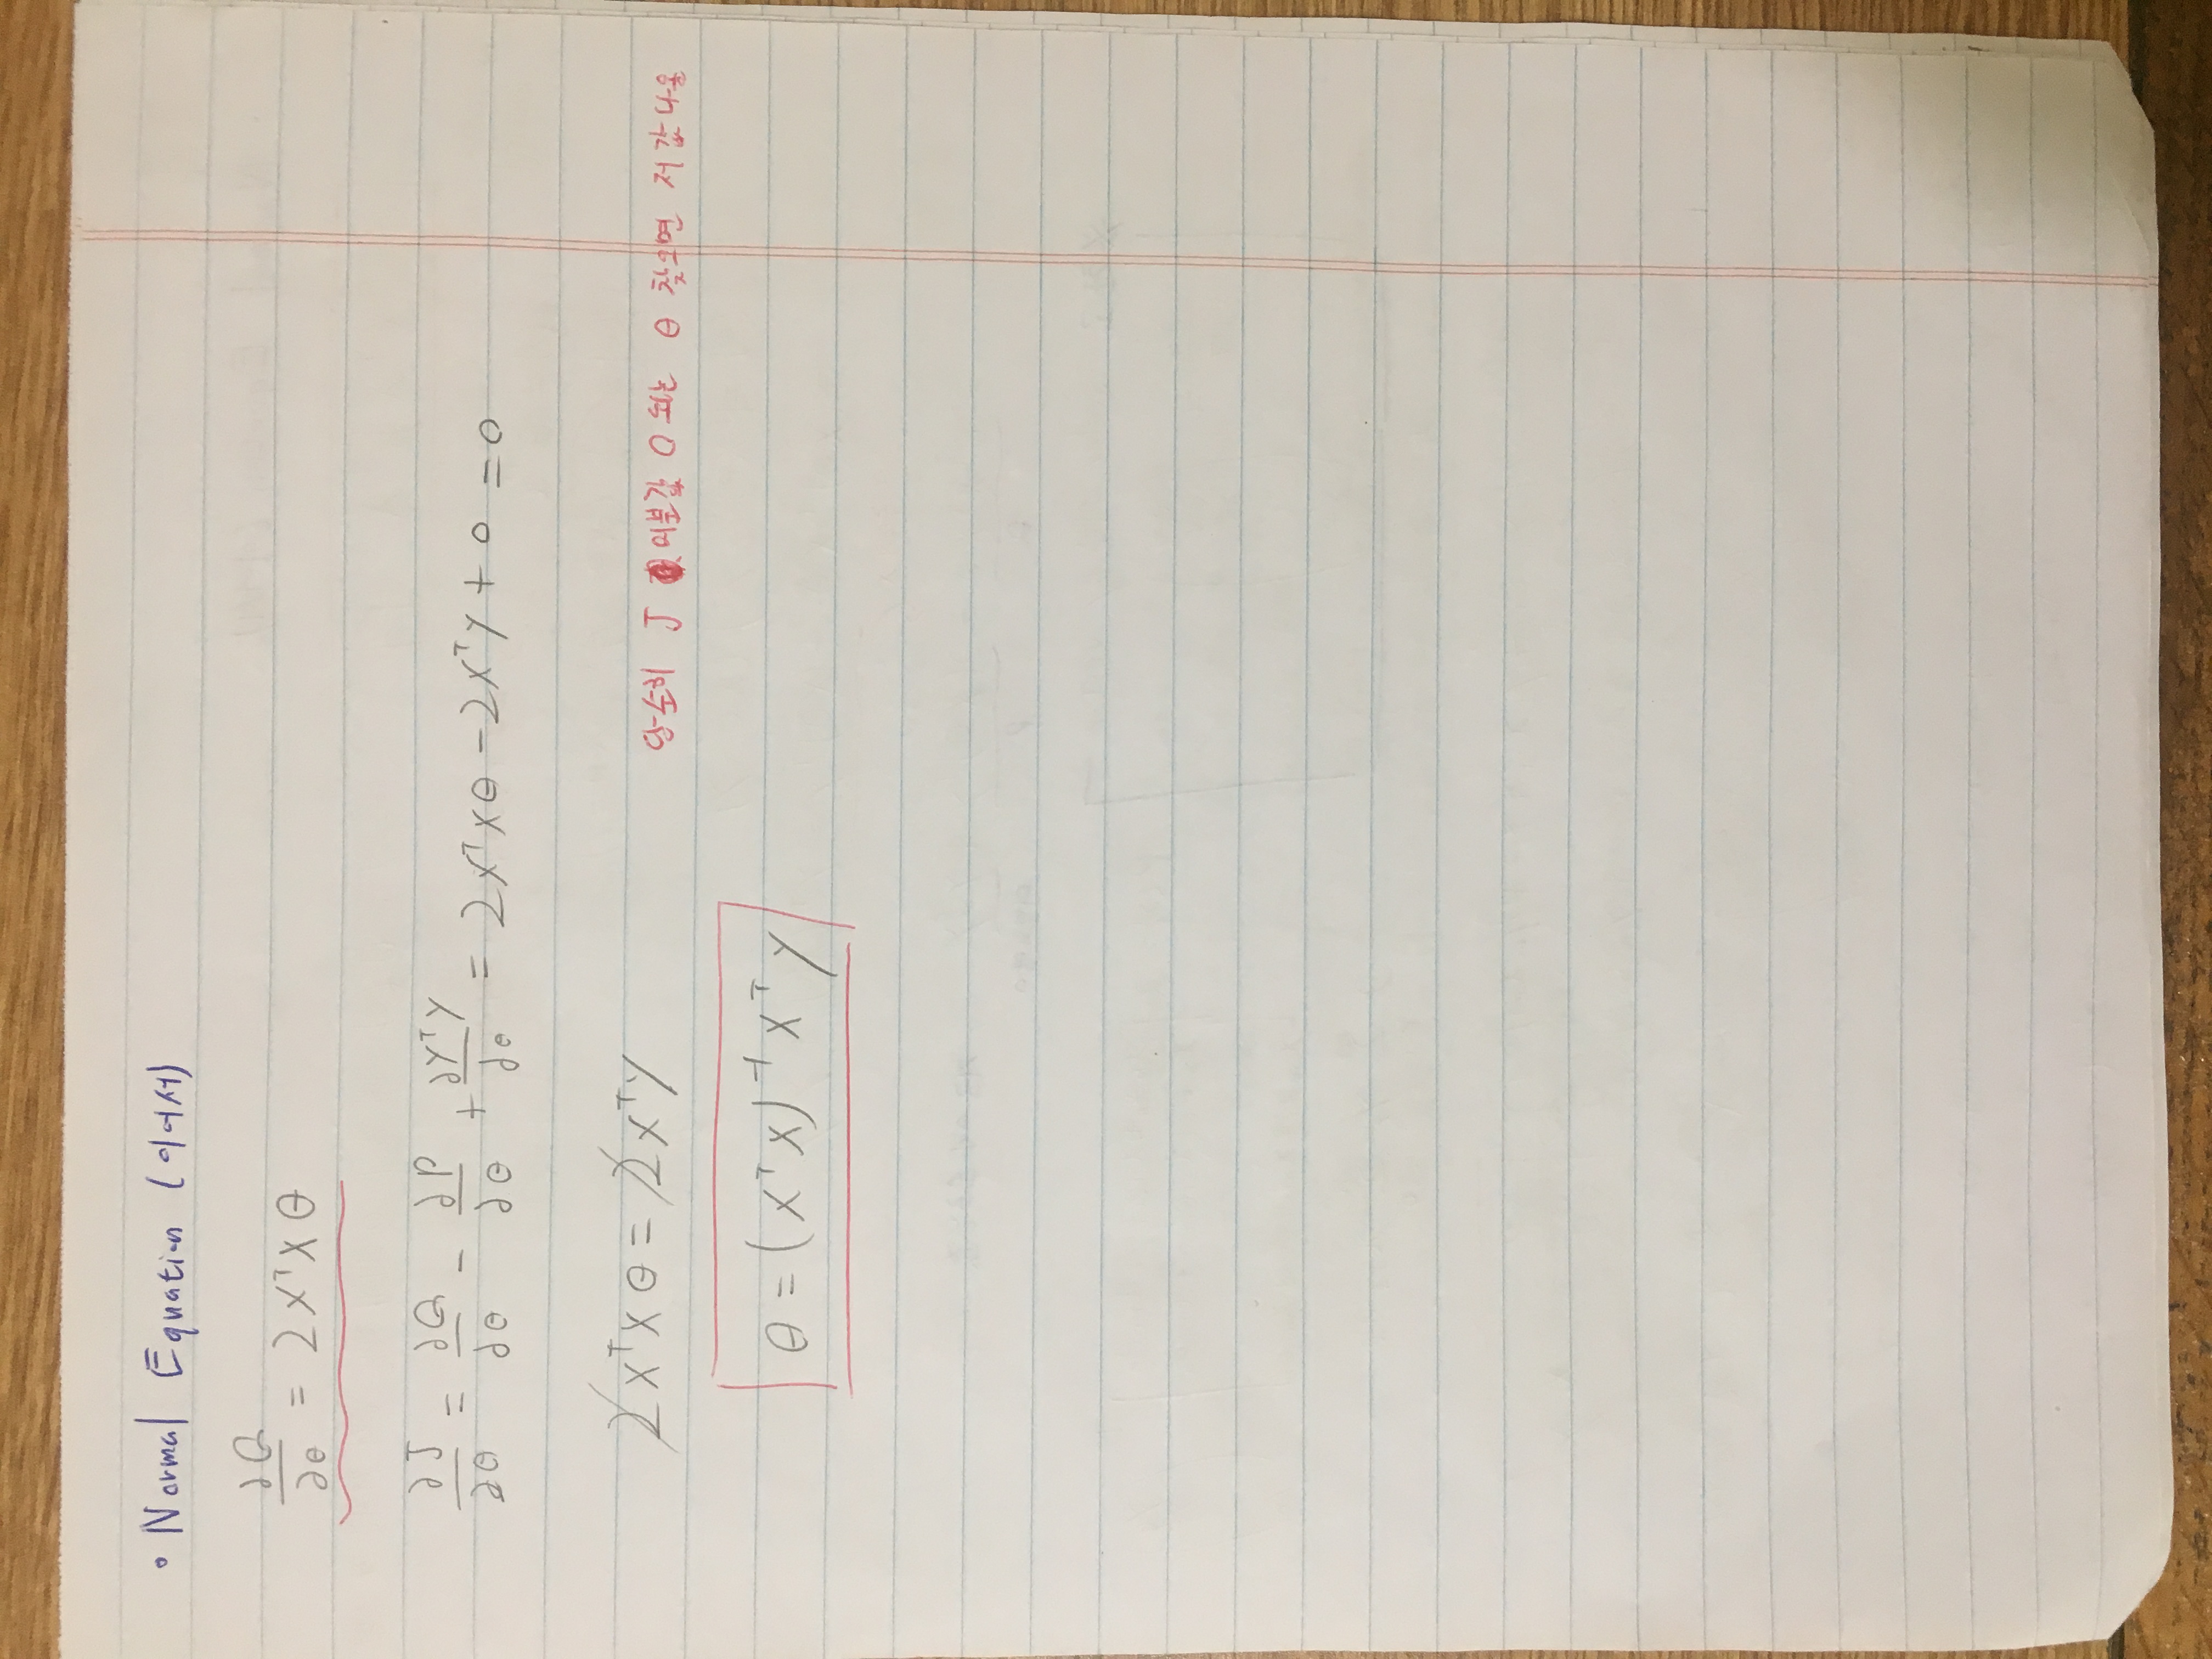 • Normal Equation (이어서)
∂Q/∂θ = 2XᵀXθ
∂J/∂θ = ∂Q/∂θ - ∂P/∂θ + ∂YᵀY/∂θ = 2XᵀXθ - 2Xᵀy + 0 = 0
2XᵀXθ = 2Xᵀy
단순히 J 미분값 0 되는 θ 찾으면 저 값 나옴
θ = (XᵀX)⁻¹Xᵀy